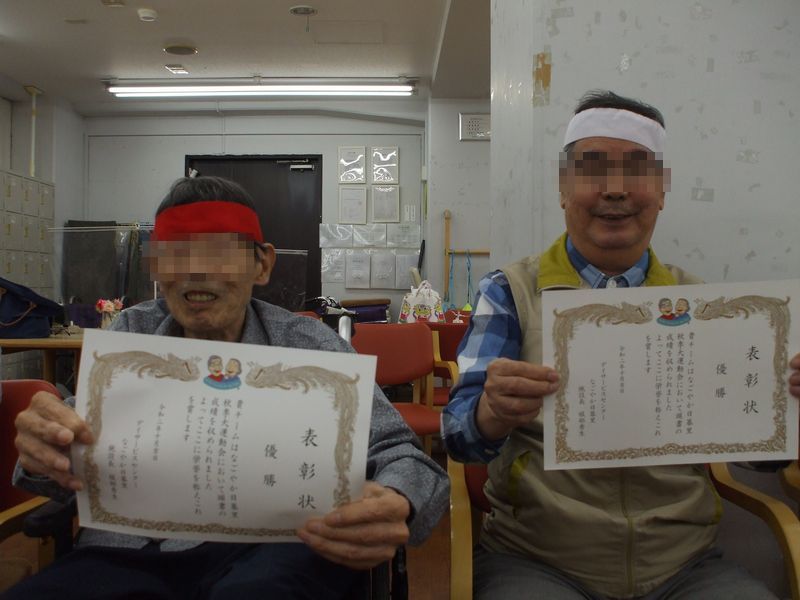 表彰状
優勝
貴チームはなごやか日暮里
秋季大運動会において頭書の
成績を収められました
よってここに栄誉を称えこれ
を賞します
令和二年十月吉日
デイサービスセンター
なごやか日暮里
施設長
表彰状
優勝
貴チームはなごやか日暮里
秋季大運動会において頭書の
成績を収められました
よってここに栄誉を称えこれ
を賞します
令和二年十月吉日
デイサービスセンター
なごやか日暮里
施設長